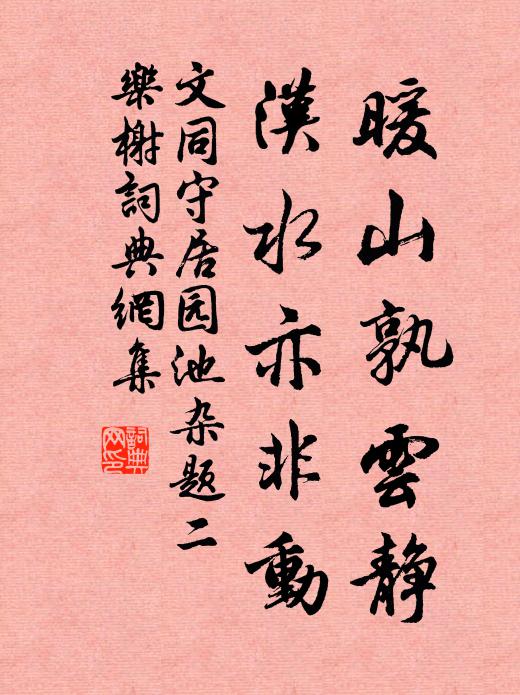 暖山孰雲静
漢水亦非動
文同守居园池杂题二
樂榭詞典網集
詞典網印